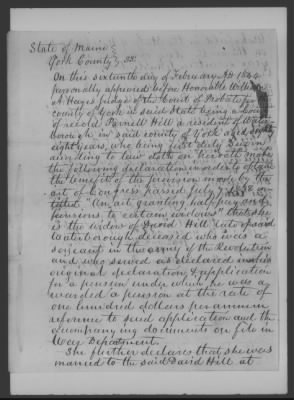 State of Maine
York County } SS.
On this sixteenth day of February AD 1844
personally appeared before Honorable William
A. Hayes judge of the Court of Probate for
county of York in said State being a court
of record. Parnell Hill a resident of Water
borough in said county of York aged
eight years, who being first duly sworn
according to law doth on her oath make
the following declaration in order to obtain
the benefit of the provision made by the
act of Congress passed July 7 1838 en
titled "An act granting half pay and
pensions to certain widows" that she
is the widow of David Hill late of said
Waterborough deceased who was a
sergiant in the army of the Revolution
and who served as declared in his
original declaration & application
for a pension under which he was a
warded a pension at the rate of
one hundred dollars per annum
reference to said application and the
accompanying documents on file in
War Department.
She further declares that she was
married to the said David Hill at